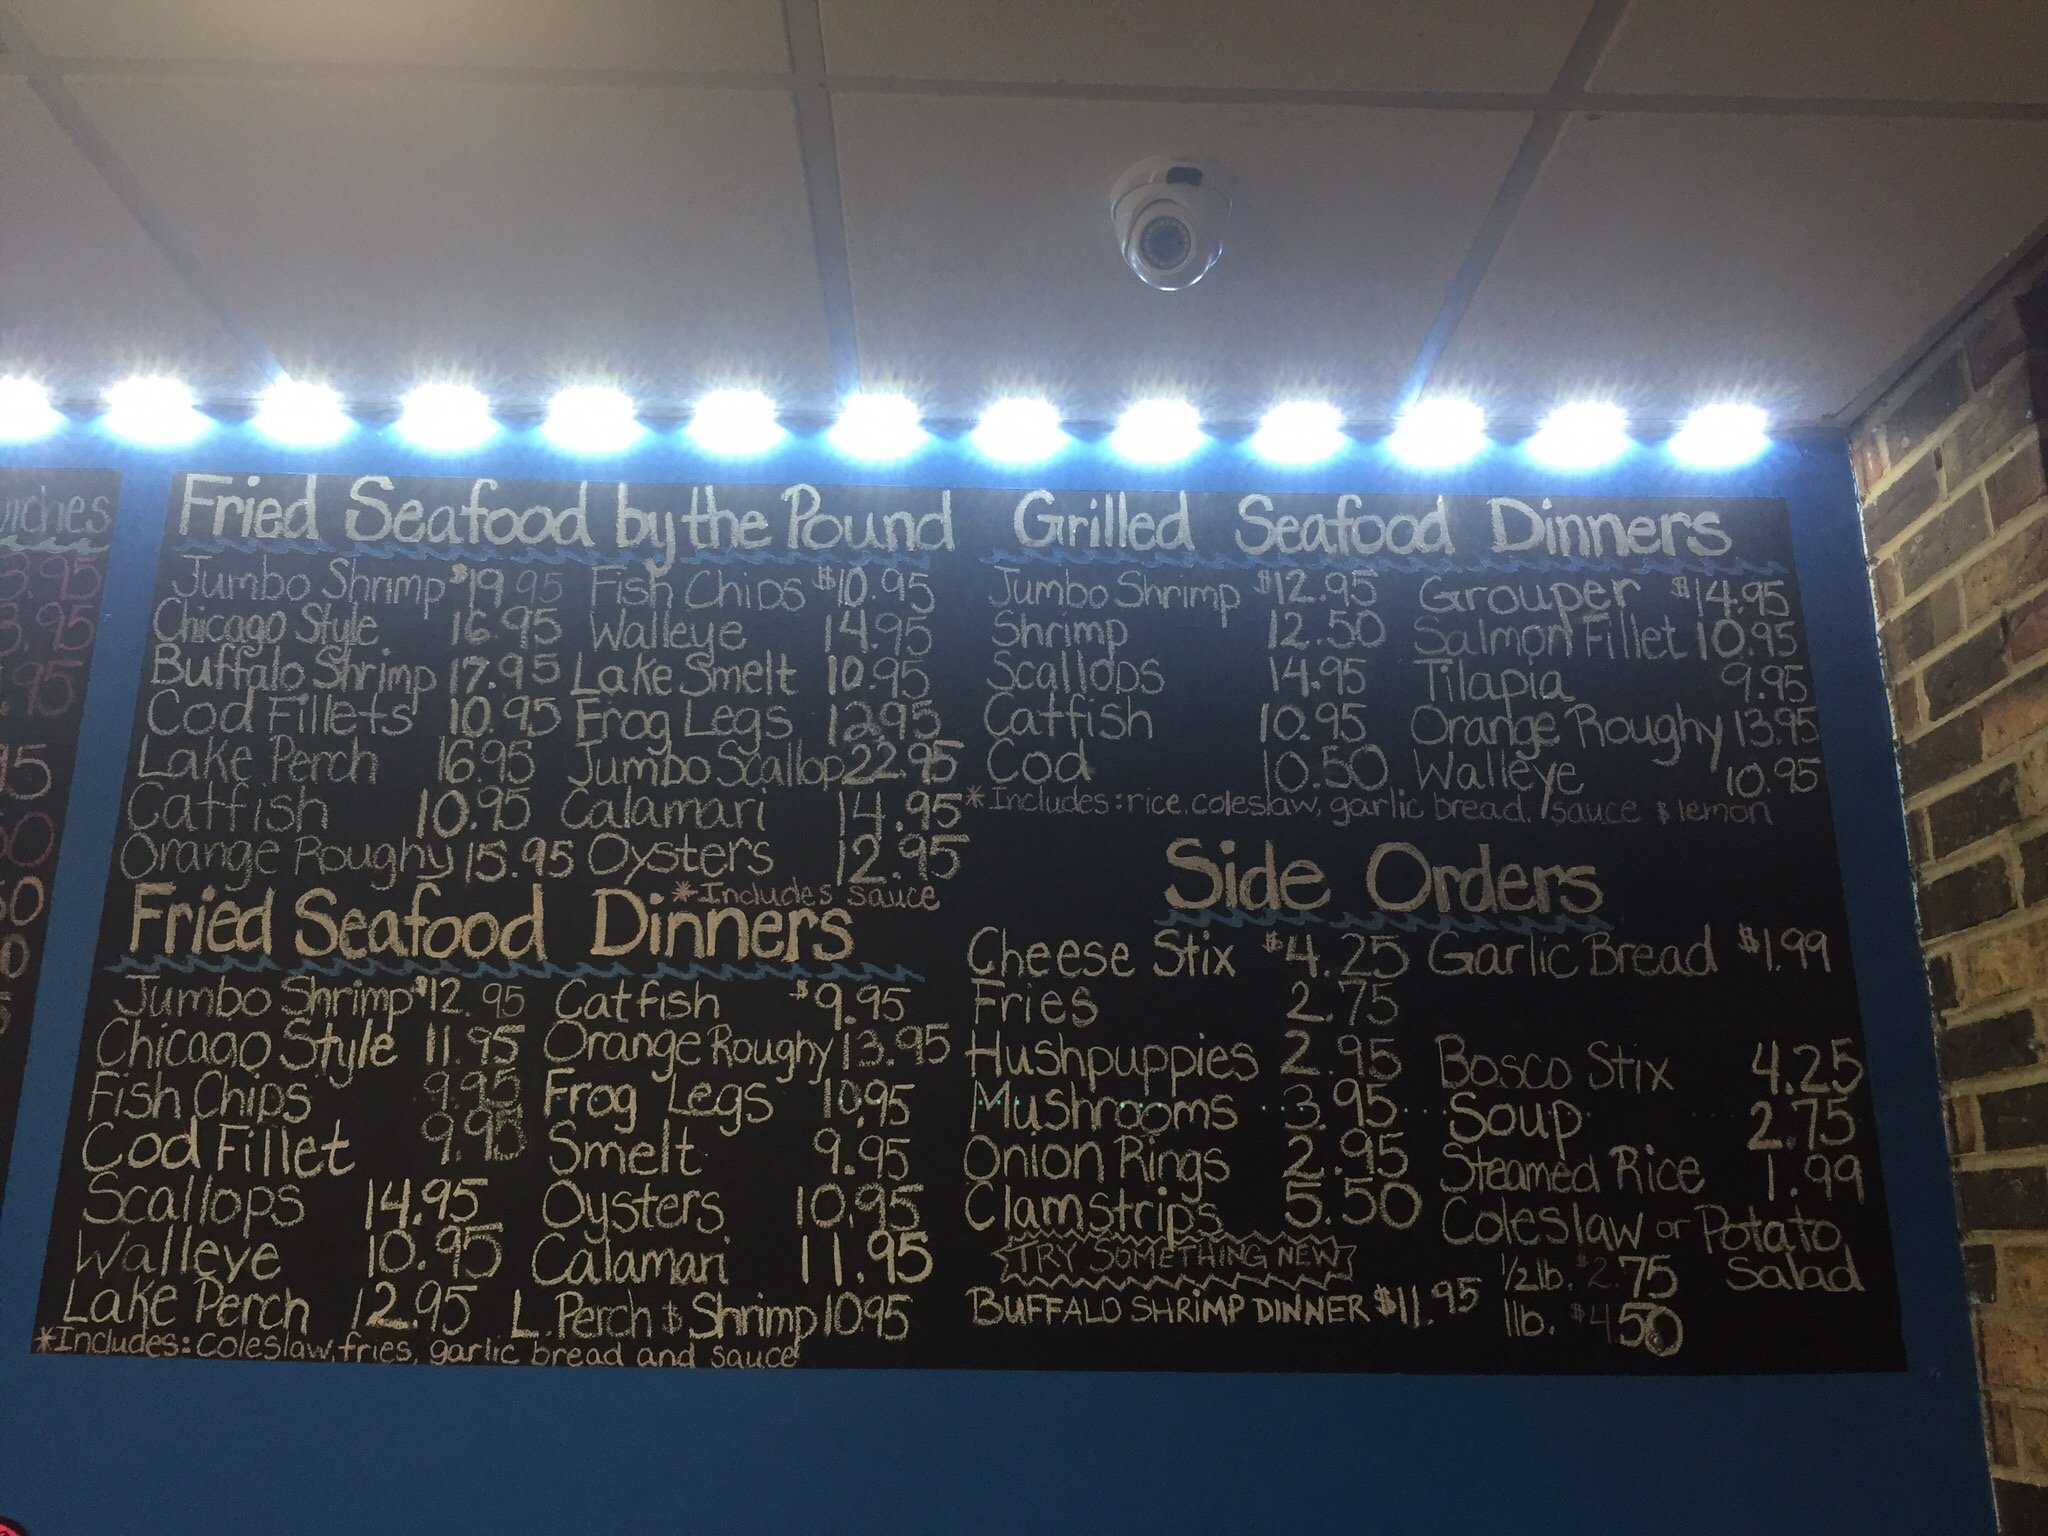 wiches
3.95
3.95
.95
Fried Seafood by the Pound
Jumbo Shrimp $19.95 Fish Chips $10.95
Chicago Style 16.95 Walleye 14.95
Buffalo Shrimp 17.95 Lake Smelt 10.95
Cod Fillets 10.95 Frog Legs
Lake Perch 16.95 Jumbo Scallop 22.95
Catfish 10.95 Calamari 14.95
Orange Roughy 15.95 Oysters 12.95
*Includes sauce
Fried Seafood Dinners
Jumbo Shrimp $12.95 Catfish $9.95
Chicago Style 11.95 Orange Roughy 13.95
Fish Chips 9.95 Frog Legs 10.95
Cod Fillet 9.95 Smelt 9.95
Scallops 14.95 Oysters 10.95
Walleye 10.95 Calamari 11.95
Lake Perch 12.95 L. Perch & Shrimp 10.95
*Includes: coleslaw, fries, garlic bread and sauce
Grilled Seafood Dinners
Jumbo Shrimp $12.95 Grouper $14.95
Shrimp 12.50 Salmon Fillet 10.95
Scallops 14.95 Tilapia 9.95
Catfish 10.95 Orange Roughy 13.95
Cod 10.50 Walleye 10.95
*Includes: rice, coleslaw, garlic bread, sauce & lemon
Side Orders
Cheese Stix $4.25 Garlic Bread $1.99
Fries 2.75
Hushpuppies 2.95 Bosco Stix 4.25
Mushrooms 3.95 Soup 2.75
Onion Rings 2.95 Steamed Rice 1.99
Clamstrips 5.50 Coleslaw or Potato Salad
1/2lb. $2.75
1lb. $4.50
TRY SOMETHING NEW
BUFFALO SHRIMP DINNER $11.95